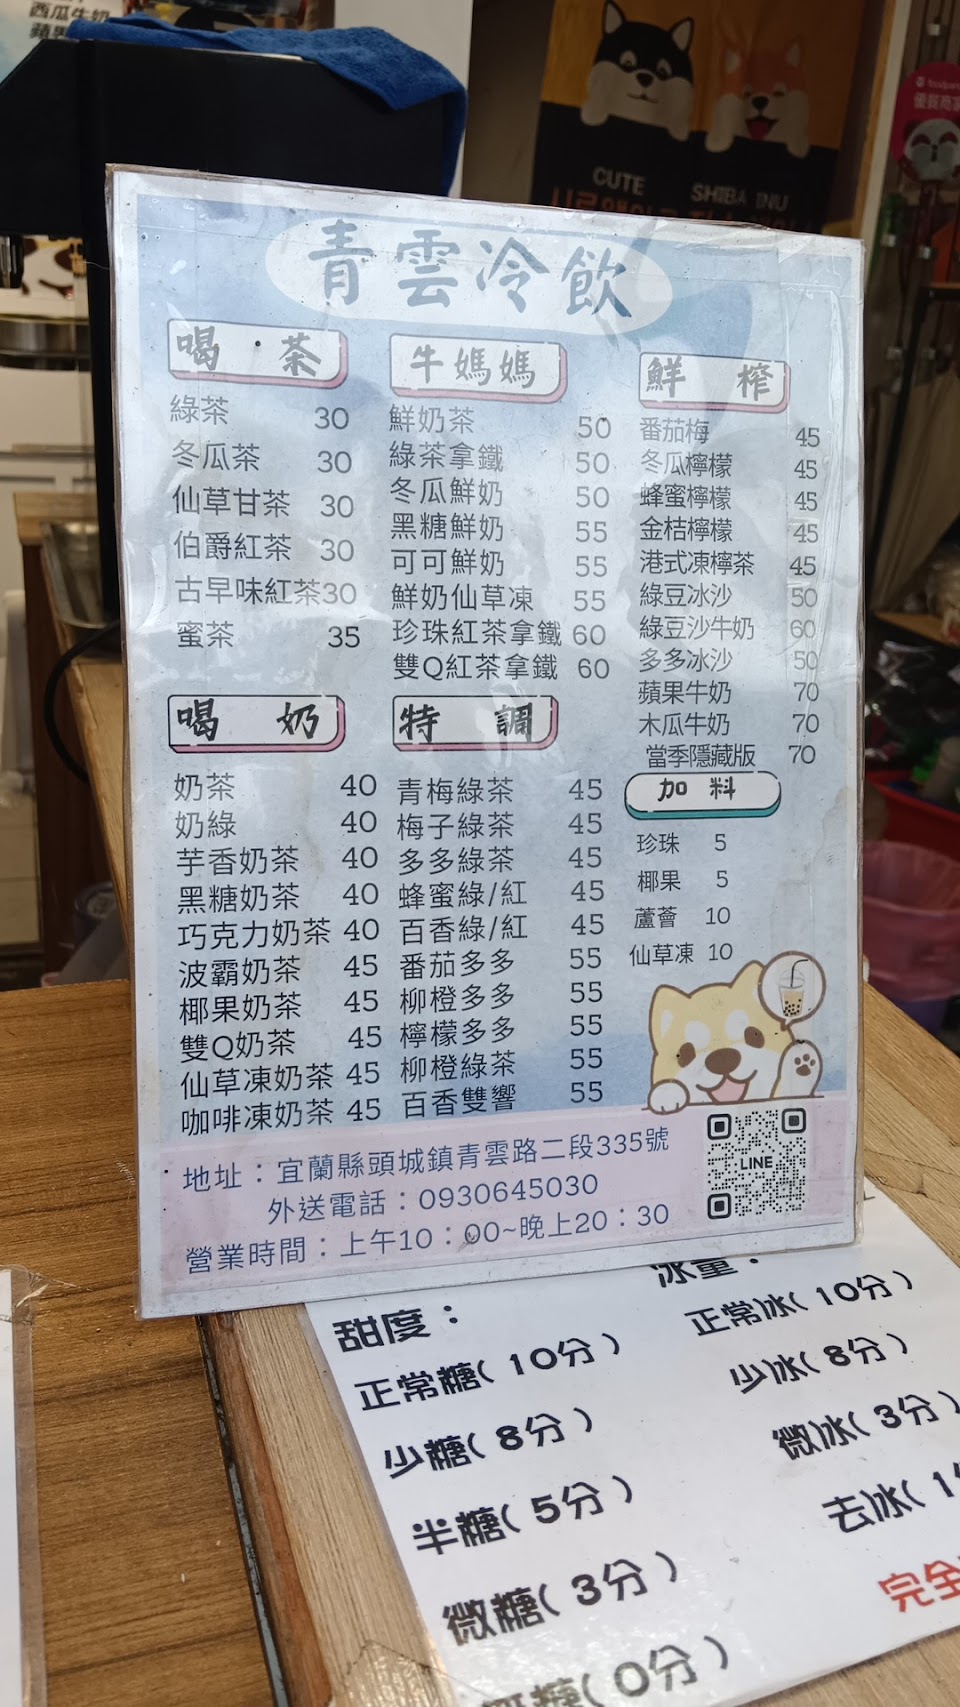 西瓜牛奶
CUTE SHIBA INU
foodpanda
青雲冷飲
喝・茶
綠茶 30
冬瓜茶 30
仙草甘茶 30
伯爵紅茶 30
古早味紅茶 30
蜜茶 35
喝 奶
奶茶 40
奶綠 40
芋香奶茶 40
黑糖奶茶 40
巧克力奶茶 40
波霸奶茶 45
椰果奶茶 45
雙Q奶茶 45
仙草凍奶茶 45
咖啡凍奶茶 45
牛媽媽
鮮奶茶 50
綠茶拿鐵 50
冬瓜鮮奶 50
黑糖鮮奶 55
可可鮮奶 55
鮮奶仙草凍 55
珍珠紅茶拿鐵 60
雙Q紅茶拿鐵 60
特 調
青梅綠茶 45
梅子綠茶 45
多多綠茶 45
蜂蜜綠/紅 45
百香綠/紅 45
番茄多多 55
柳橙多多 55
檸檬多多 55
柳橙綠茶 55
百香雙響 55
鮮 榨
番茄梅 45
冬瓜檸檬 45
蜂蜜檸檬 45
金桔檸檬 45
港式凍檸茶 45
綠豆冰沙 50
綠豆沙牛奶 60
多多冰沙 50
蘋果牛奶 70
木瓜牛奶 70
當季隱藏版 70
加料
珍珠 5
椰果 5
蘆薈 10
仙草凍 10
地址：宜蘭縣頭城鎮青雲路二段335號
外送電話：0930645030
營業時間：上午10：00~晚上20：30
LINE
甜度：
正常糖(10分)
少糖(8分)
半糖(5分)
微糖(3分)
糖(0分)
冰量：
正常冰(10分)
少冰(8分)
微冰(3分)
去冰(1
完全